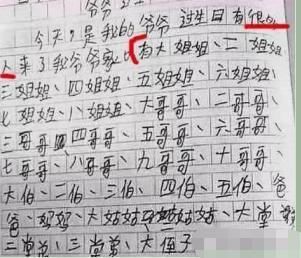 爷爷
今天，是我的爷爷过生日有很多
人来了我爷爷家，有大姐姐、二姐姐
三姐姐、四姐姐、五姐姐、六姐姐、
七姐姐、八姐姐、大哥哥、二哥哥、
三哥哥四哥哥、五哥哥、六哥哥、
七哥哥、八哥哥、九哥哥、十哥哥、
大伯、二伯、三伯、四伯、五伯、爸
爸、妈妈、大姑姑、姑姑、大堂
二堂弟、三堂弟、大侄子